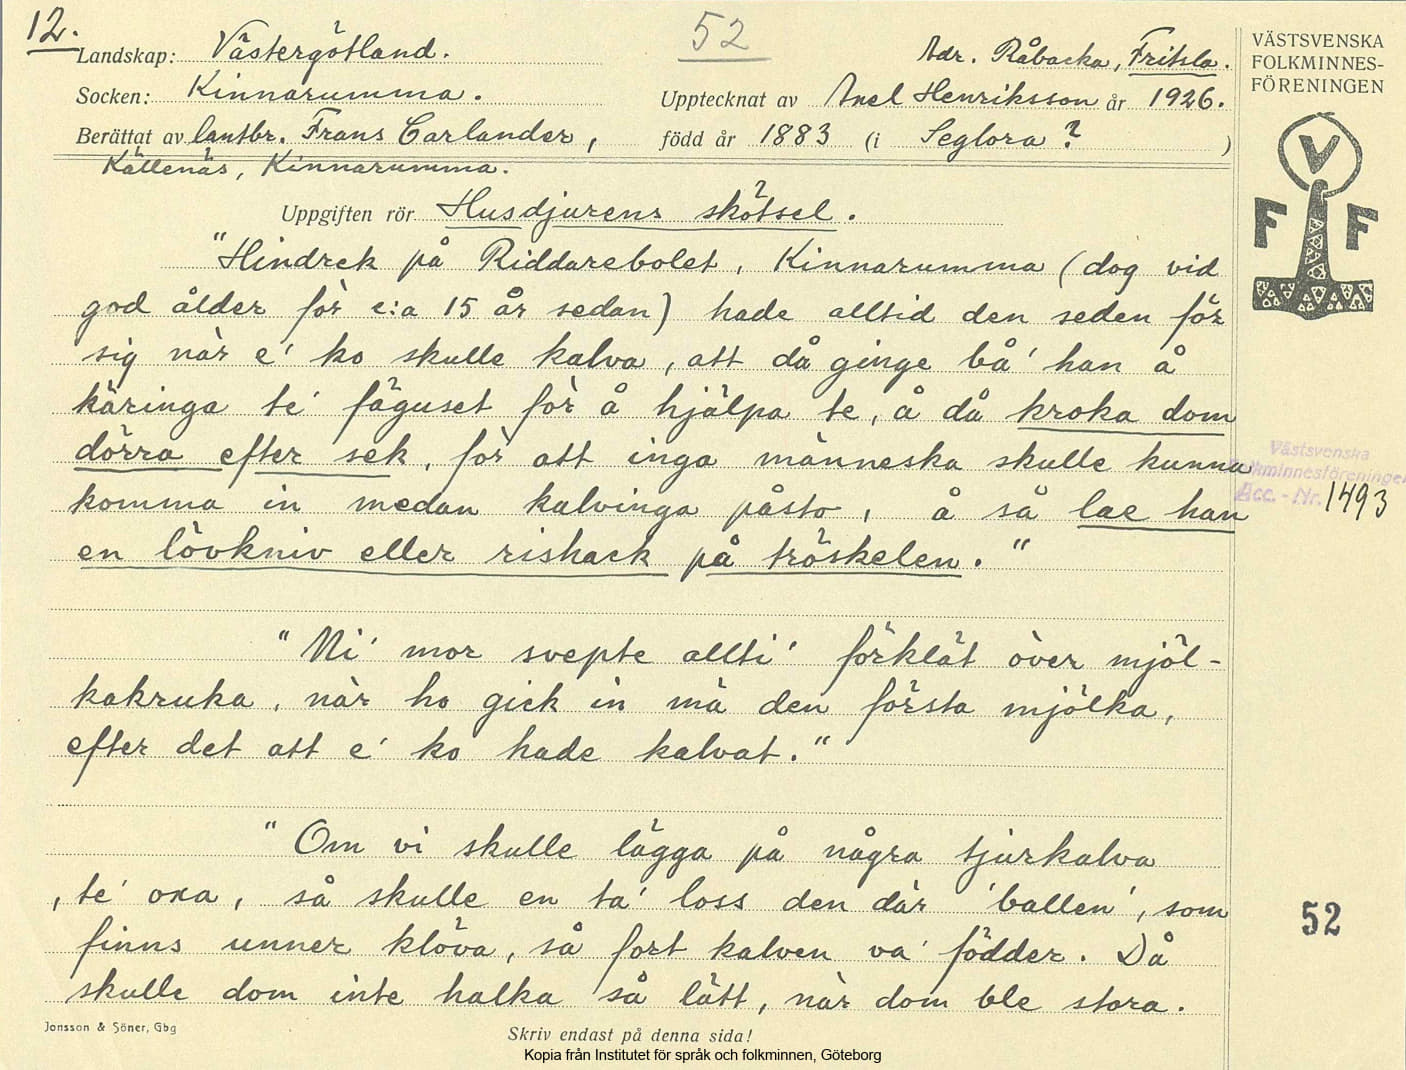 12.
52
Landskap: Västergötland.
Adr. Råbacka, Fritsla.
Socken: Kinnarumma.
Upptecknat av Axel Henriksson år 1926.
Berättat av lantbr. Frans Carlander,
född år 1883 (i Seglora? )
Källenäs, Kinnarumma.
VÄSTSVENSKA
FOLKMINNES-
FÖRENINGEN
V
F F
Uppgiften rör Husdjurens skötsel.
"Hindrek på Riddarebolet, Kinnarumma (dog vid
god ålder för c:a 15 år sedan) hade alltid den seden för
sig när e' ko skulle kalva, att då ginge bå' han å
käringa te' fäguset för å hjälpa te, å då kroka dom
dörra efter sek, för att inga människa skulle kunna
komma in medan kalvinga påsto, å så lae han
en lövkniv eller rishack på tröskelen."
Västsvenska
Folkminnesföreningen
Acc. - Nr. 1493
"Mi' mor svepte allti' förklät över mjöl-
kakruka, när ho gick in mä den första mjölka,
efter det att e' ko hade kalvat."
"Om vi skulle lägga på några tjurkalva
, te' oxa, så skulle en ta' loss den där 'ballen', som
finns unner klöva, så fort kalven va' födder. Då
skulle dom inte halka så lätt, när dom ble stora.
52
Jonsson & Söner, Gbg
Skriv endast på denna sida!
Kopia från Institutet för språk och folkminnen, Göteborg